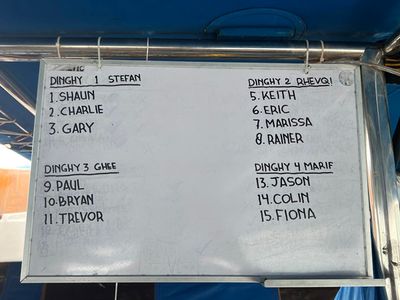 DINGHY 1 STEFAN
1. SHAUN
2. CHARLIE
3. GARY
DINGHY 2 RHEVQI
5. KEITH
6. ERIC
7. MARISSA
8. RAINER
DINGHY 3 GHEE
9. PAUL
10. BRYAN
11. TREVOR
DINGHY 4 MARIF
13. JASON
14. COLIN
15. FIONA